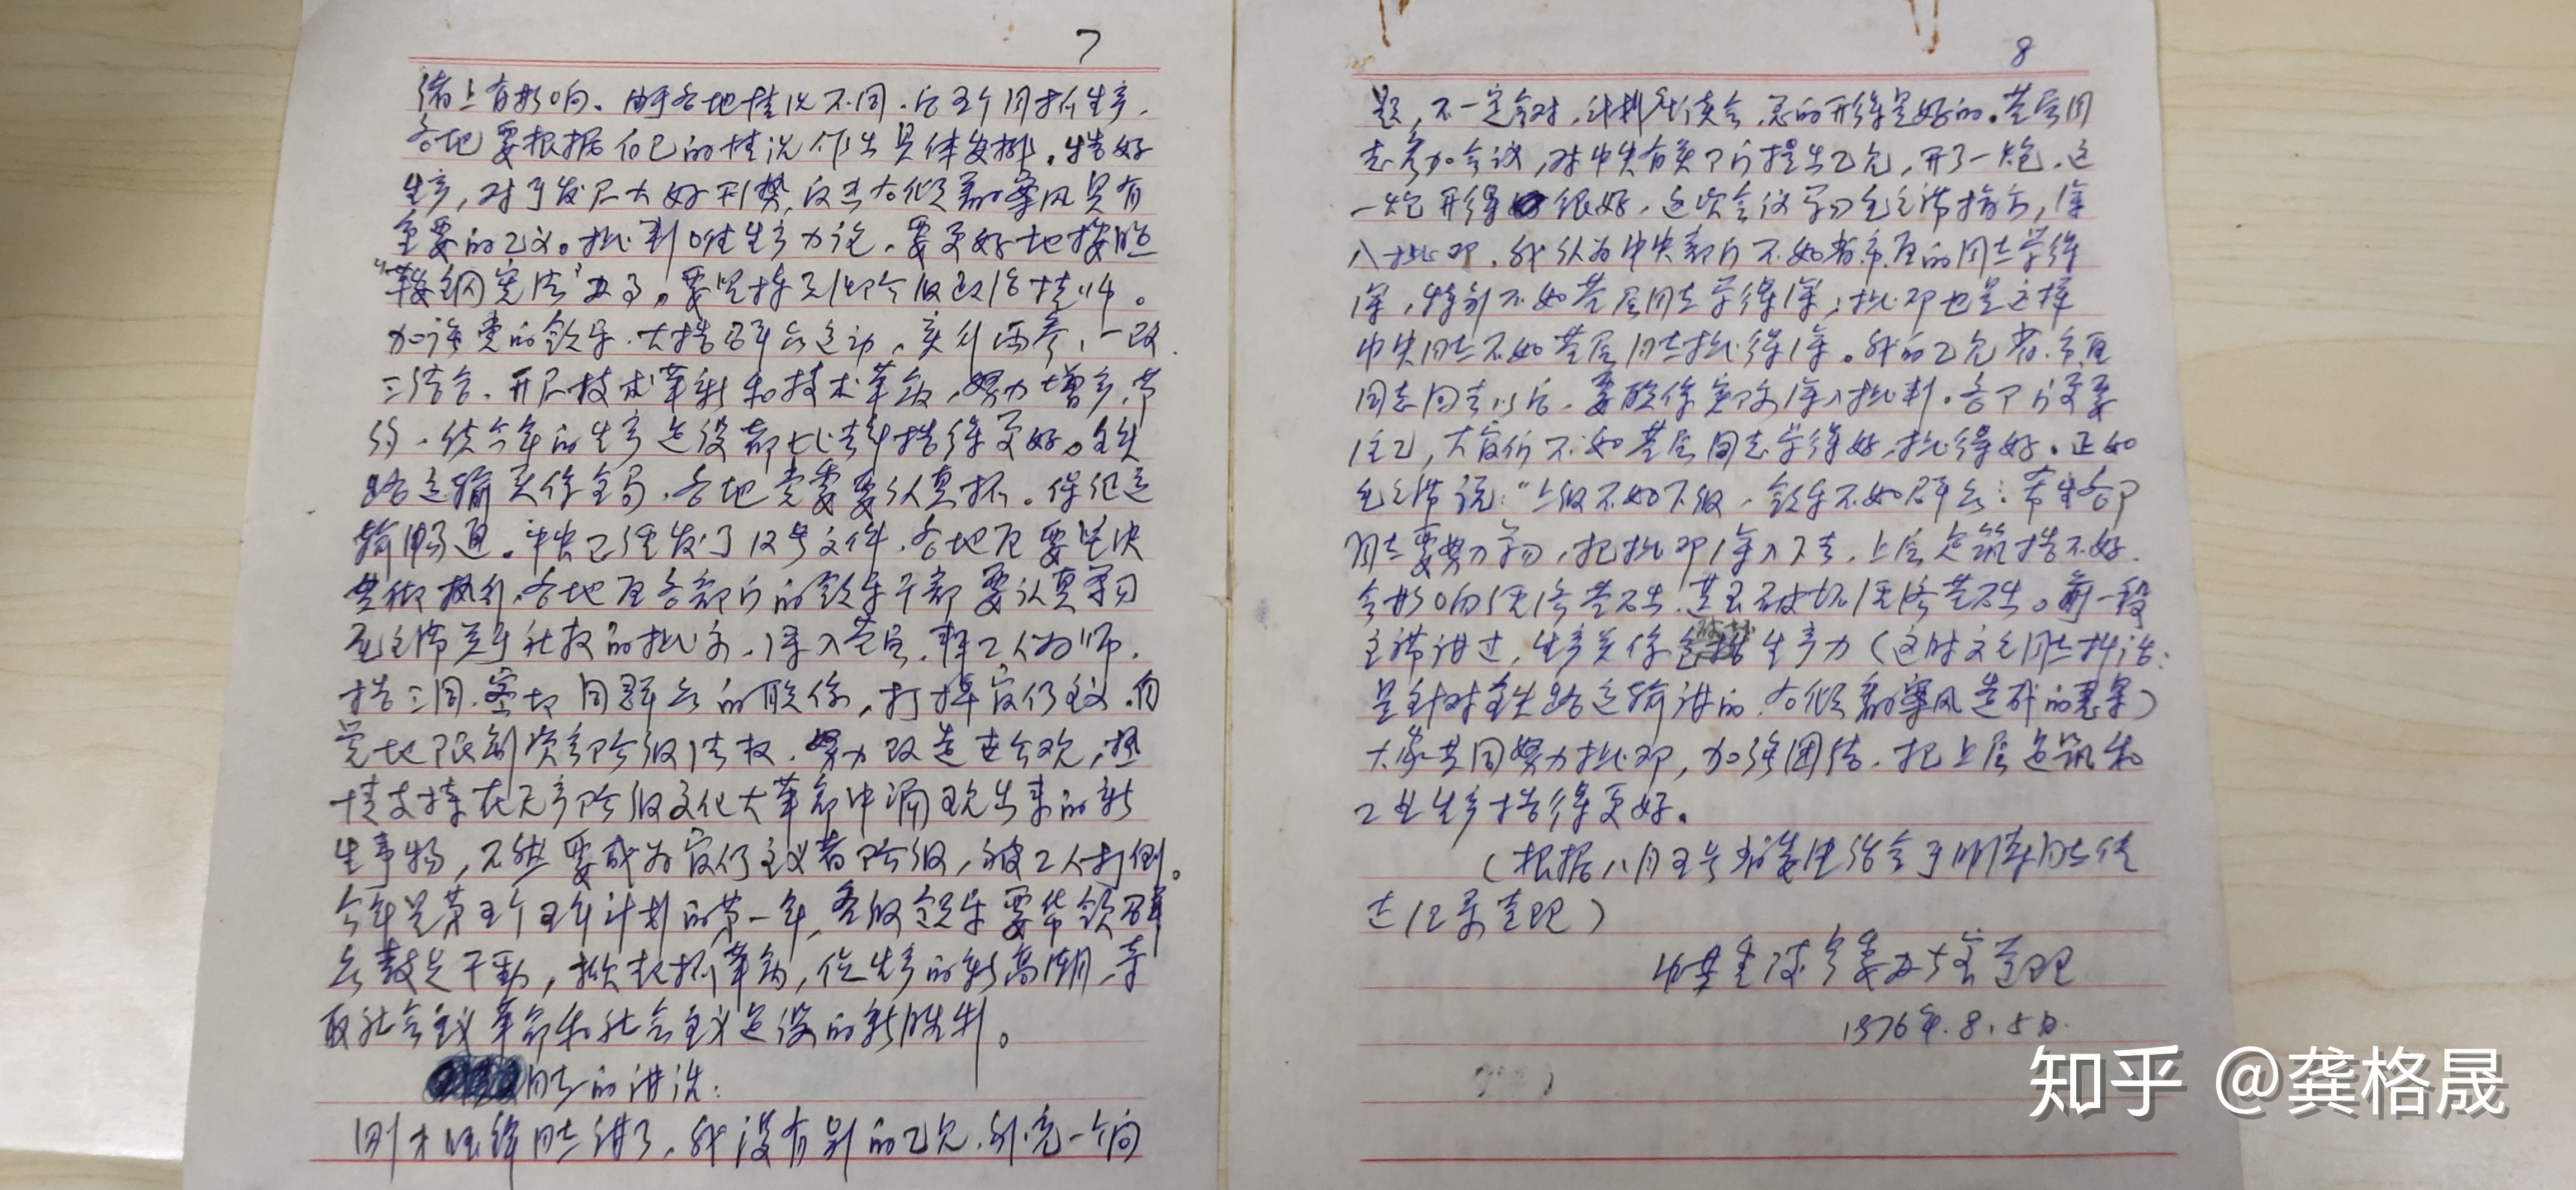 7
绪上有影响。由于各地情况不同。后五个月抓生产，
各地要根据自己的情况作出具体安排。搞好
生产，对于发展大好形势，反击右倾翻案风具有
重要的乙义。批判唯生产力论。要更好地按照
“鞍钢宪法”办事。要坚持无产阶级政治挂帅。
加强党的领导。大搞群众运动，实行两参、一改
三结合。开展技术革新和技术革命，努力增产节
约，使今年的生产建设都比去年搞得更好。铁
路运输关系全局，各地党委要认真抓。保证运
输畅通。中央已经发了12号文件，各地区要坚决
贯彻执行，各地区各部门的领导干部要认真学习
毛主席关于社教的批示，深入基层，拜工人为师，
搞三同，密切同群众的联系，打掉官僚主义，自
觉地限制资产阶级法权，努力改造世界观，热
情支持在无产阶级文化大革命中涌现出来的新
生事物，不然要成为官僚主义者阶级，被工人打倒。
今年是第五个五年计划的第一年，各级领导要带领群
众鼓足干劲，掀起抓革命，促生产的新高潮，夺
取社会主义革命和社会主义建设的新胜利。
同志的讲话：
刚才 同志讲了，我没有别的乙见，补充一个问
8
题，不一定会对，计划座谈会，总的开得是好的。基层同
志参加会议，对中央有关部门提出乙见，开了一炮，这
一炮开得很好，这次会议学习毛主席指示，深
入批邓，我认为中央部门不如省市区的同志学得
深，特别不如基层同志学得深；批邓也是这样
中央同志不如基层同志批得深。我的乙见省、市区
同志回去以后，要联系实际深入批判。各部门更要
注乙，大官们不如基层同志学得好，批得好。正如
毛主席说：“上级不如下级，领导不如群众：希望各部
同志要努力学习，把批邓深入下去，上层建筑搞不好
会影响经济基础，甚至破坏经济基础。前一段
主席讲过，生产关系破坏生产力（这时文元同志插话：
是针对铁路运输讲的，右倾翻案风造成的恶果）
大家共同努力批邓，加强团结，把上层建筑和
工业生产搞得更好。
（根据八月五号 会 同志传
达记录整理）
中共 整理
1976年.8.5日.
知乎 @龚格晟